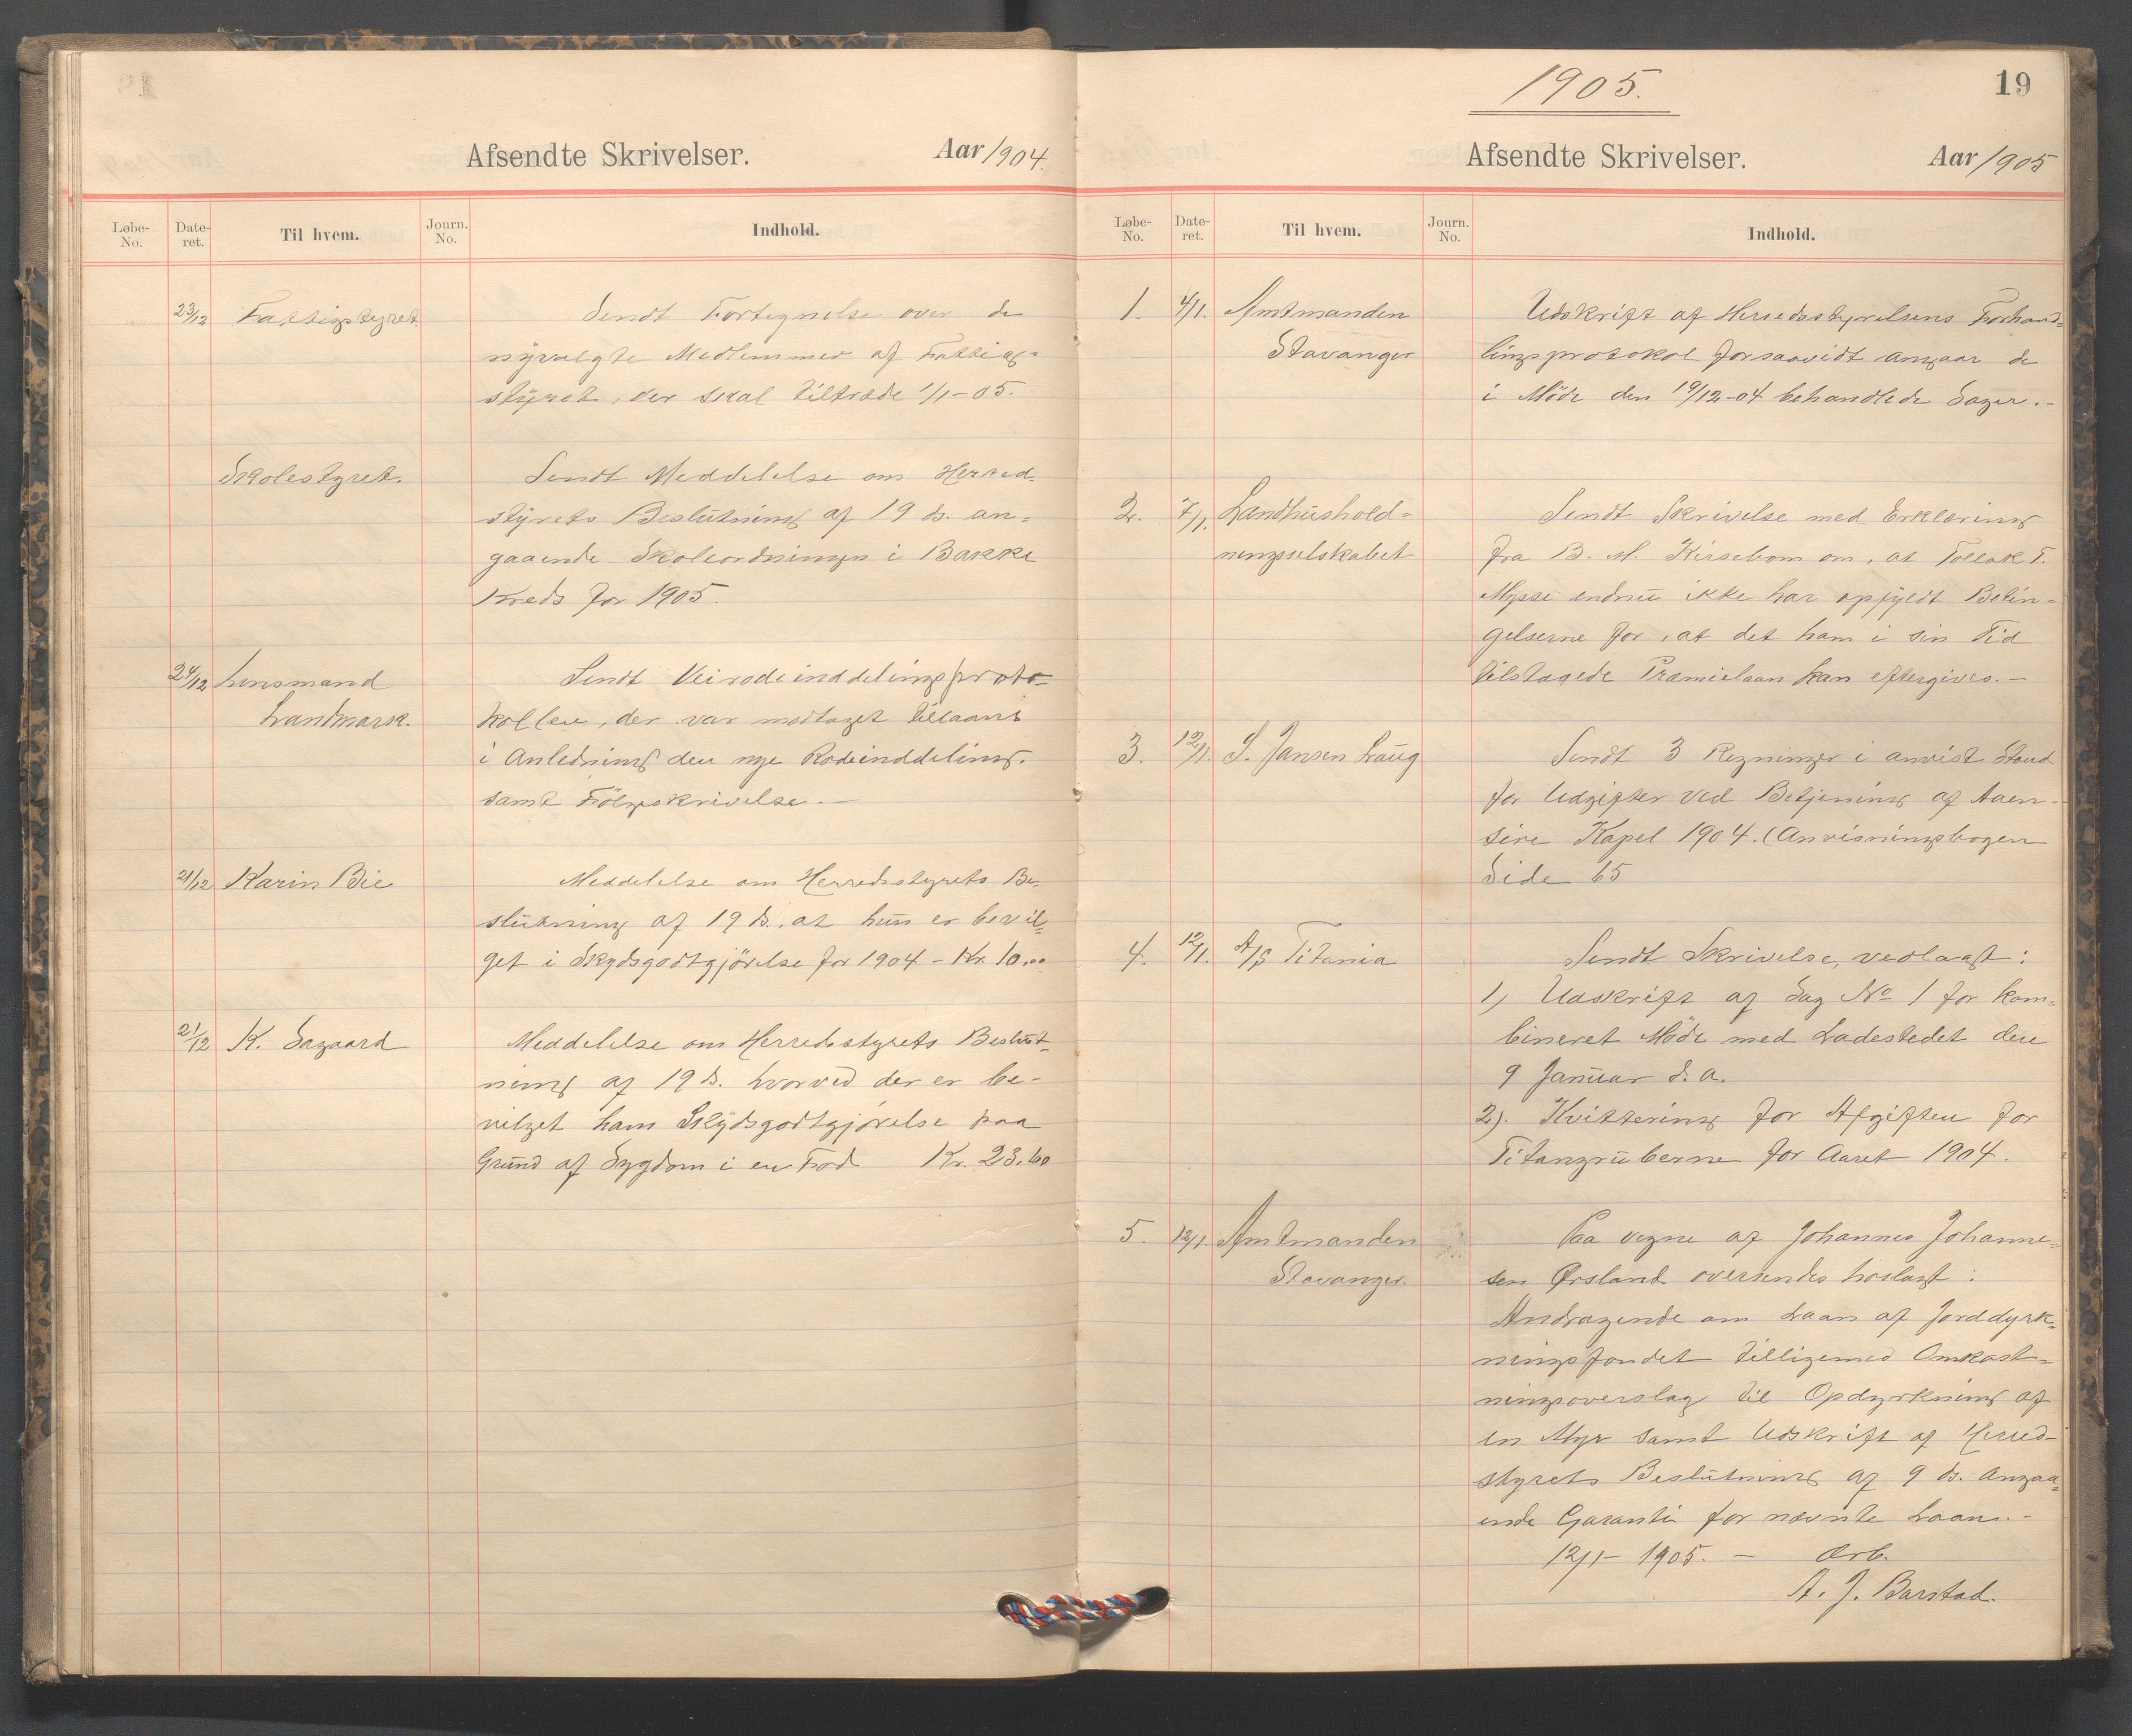 Afsendte Skrivelser. Aar 1904.
Løbe-No. Date-ret. Til hvem. Journ. No. Indhold.
23/12 Fattigstyret Sendt Fortegnelse over de
nyvalgte Medlemmer af Fattig-
styret, der skal tiltræde 1/1-05.
Skolestyret. Sendt Meddelelse om Herred-
styrets Beslutning af 19 ds. an-
gaaende Skoleordningen i Bakke
Kreds for 1905.
24/12 Lensmand Sendt Veirodeinddelingsproto-
Landmark. kollen, der var modtaget tillaans
i Anledning den nye Rodeinddeling.
samt Følgeskrivelse.—
21/12 Karin Bie Meddelelse om Herredsstyrets Be-
slutning af 19 ds. at hun er bevil-
get i Skydsgodtgjörelse for 1904 - Kr. 10.00
21/12 K. Sagaard Meddelelse om Herredsstyrets Beslut-
ning af 19 ds. hvorved der er be-
vilget ham Skydsgodtgjörelse paa
Grund af Sygdom i en Fod Kr. 23.60
1905.
19
Afsendte Skrivelser. Aar 1905
Løbe-No. Date-ret. Til hvem. Journ. No. Indhold.
1. 4/1. Amtmanden Udskrift af Herredsstyrelsens Forhand-
Stavanger lingsprotokol forsaavidt angaar de
i Möde den 19/12-04 behandlede Sager.-
2. 7/1. Landhushold- Sendt Skrivelse med Erklæring
ningsselskabet fra B. M. Kirsebom om, at Tollak T.
Mysse endnu ikke har opfyldt Betin-
gelserne for, at det ham i sin Tid
tilstaaede Præmielaan kan eftergives.—
3. 12/1. S. Jansen Haug Sendt 3 Regninger i anvist Stand
for Udgifter ved Betjening af Aaen-
sire Kapel 1904. (Anvisningsbogen
Side 65
4. 12/1. A/S Titania Sendt Skrivelse, vedlagt:
1) Udskrift af Sag No 1 for kom-
bineret Möde med Ladestedet den
9 Januar d. a.
2). Kvittering for Afgiften for
Titangruberne for Aaret 1904.
5. 12/1. Amtmanden Paa vegne af Johannes Johanne-
Stavanger. sen Ørsland oversendes hoslagt:
Andragende om Laan af Jorddyrk-
ningsfondet tilligemed Omkost-
ningsoverslag til Opdyrkning af
en Myr samt Udskrift af Herred-
styrets Beslutning af 9 ds. angaa-
ende Garanti for nævnte Laan.-
12/1- 1905. — Ærb.
A. J. Barstad.